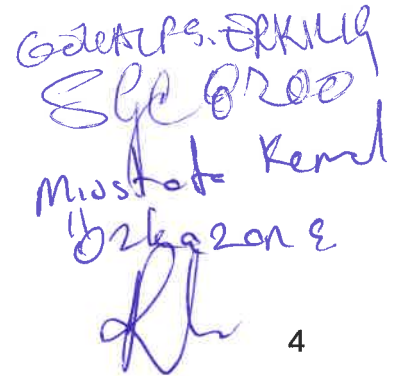 GÖKALP S. ERKILIÇ
SGC 6200
Mustafa Kemal
Özkazanç
4